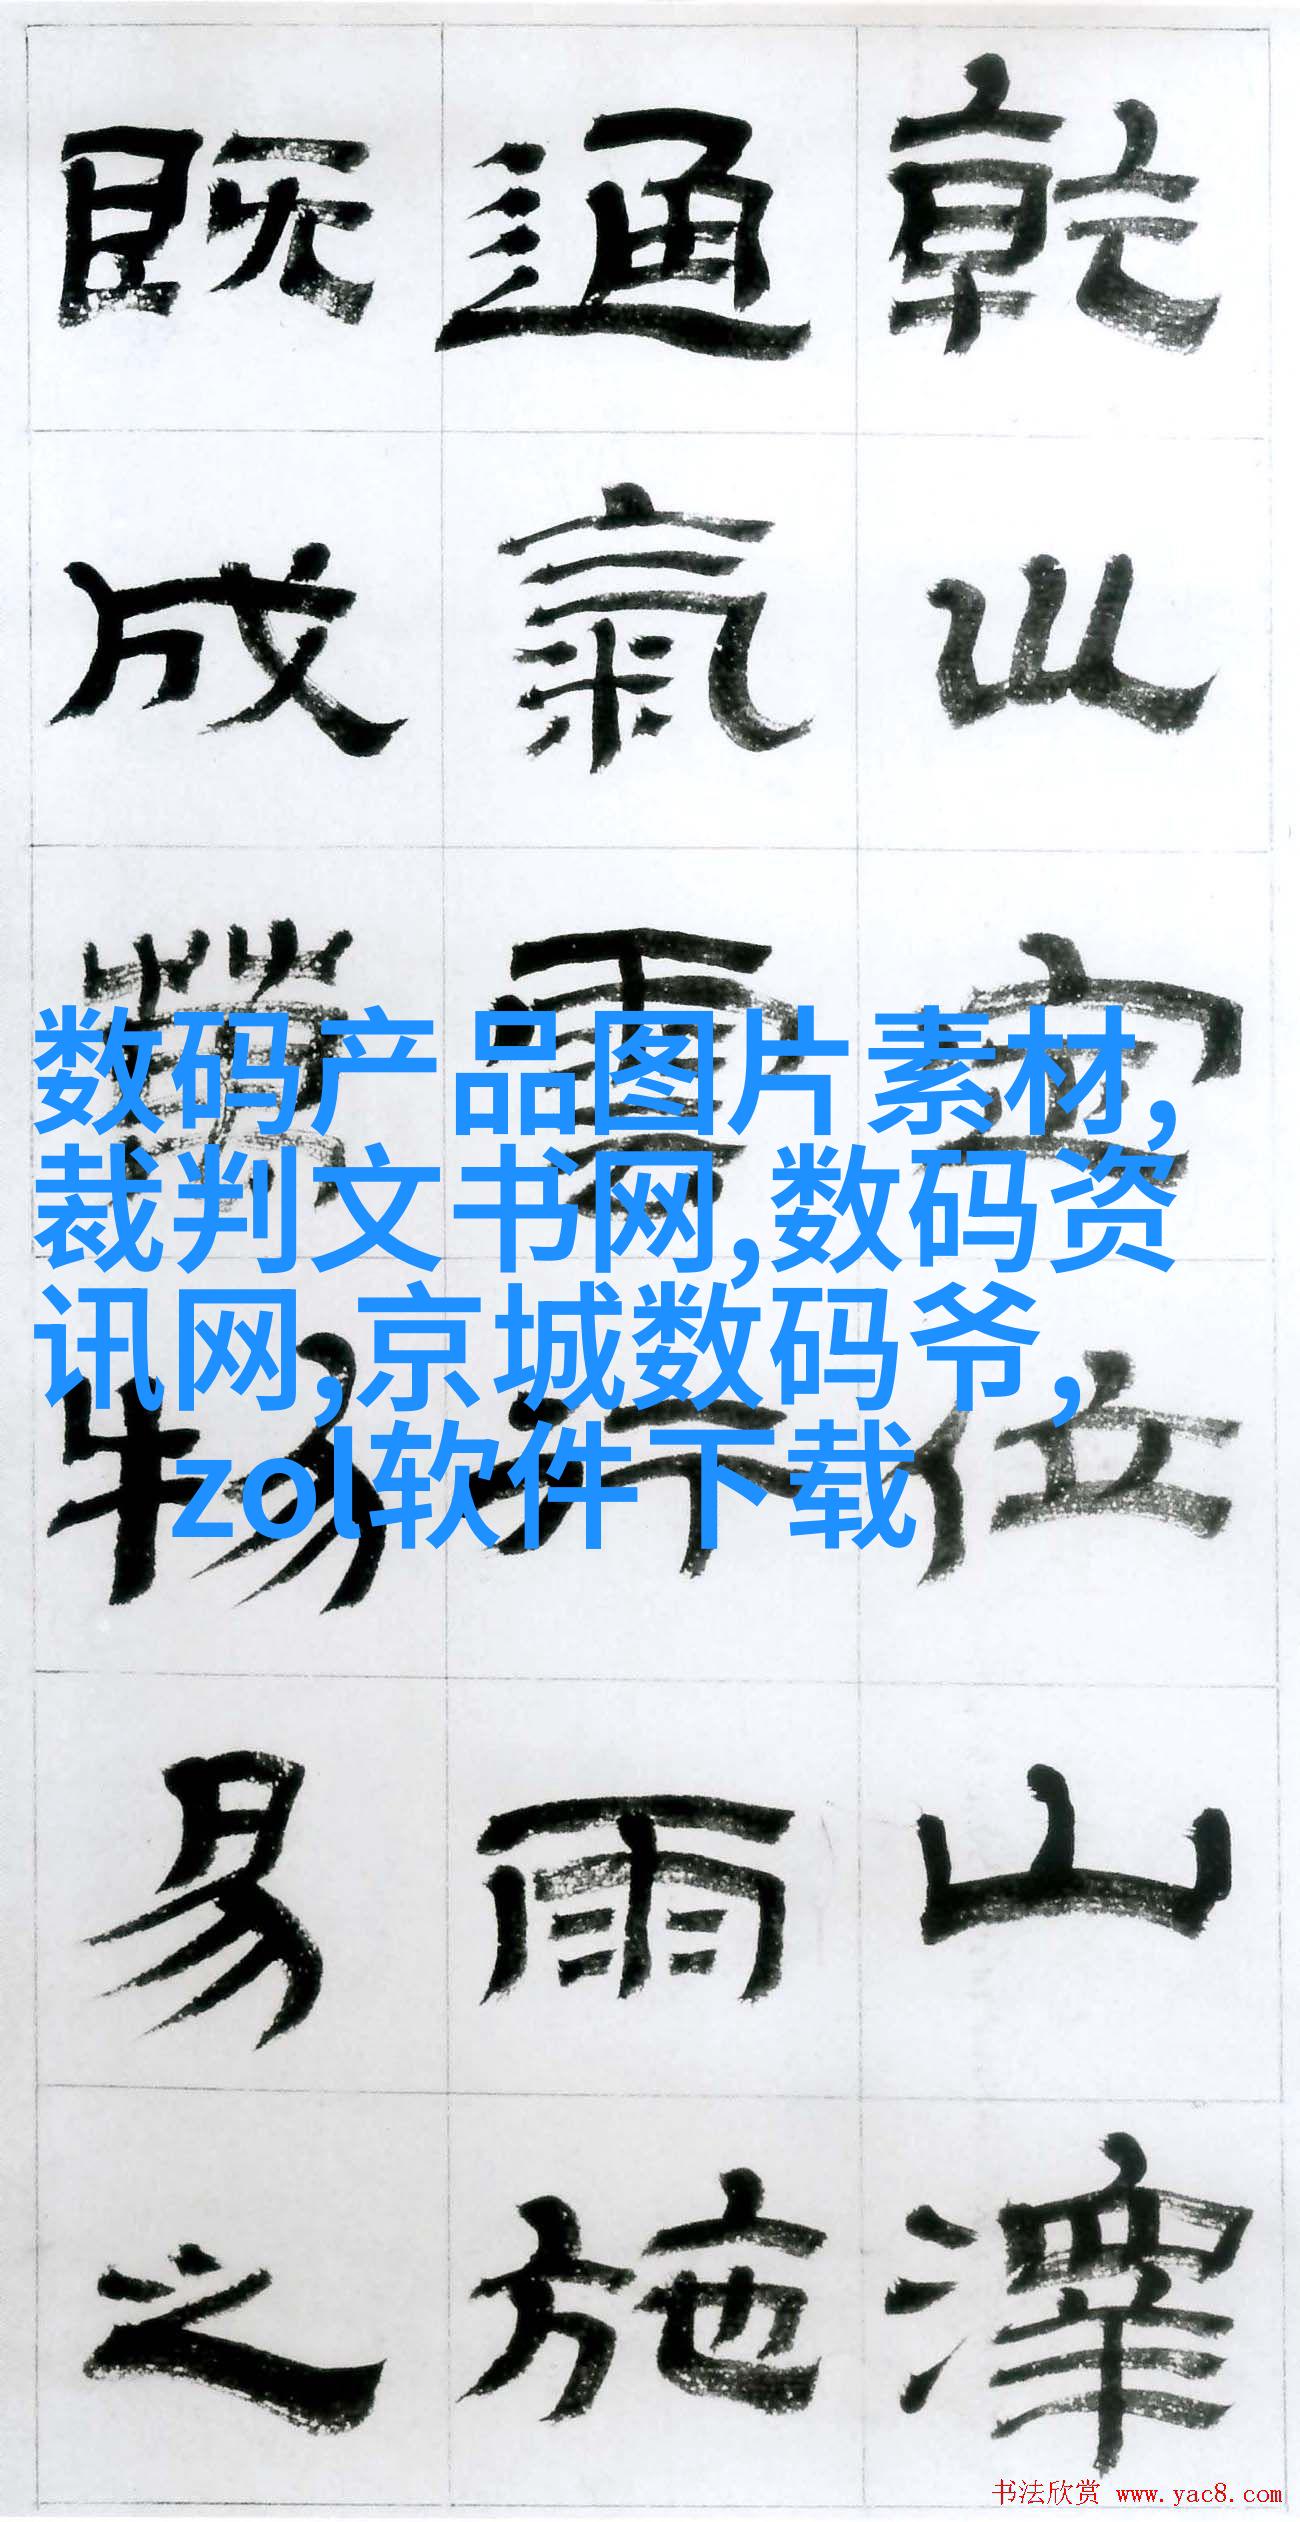 乾坤定位山澤
通氣雲行雨施
既成萬物易之
数码产品图片素材,
裁判文书网,数码资
讯网,京城数码爷,
zol软件下载
书法欣赏 www.yac8.com